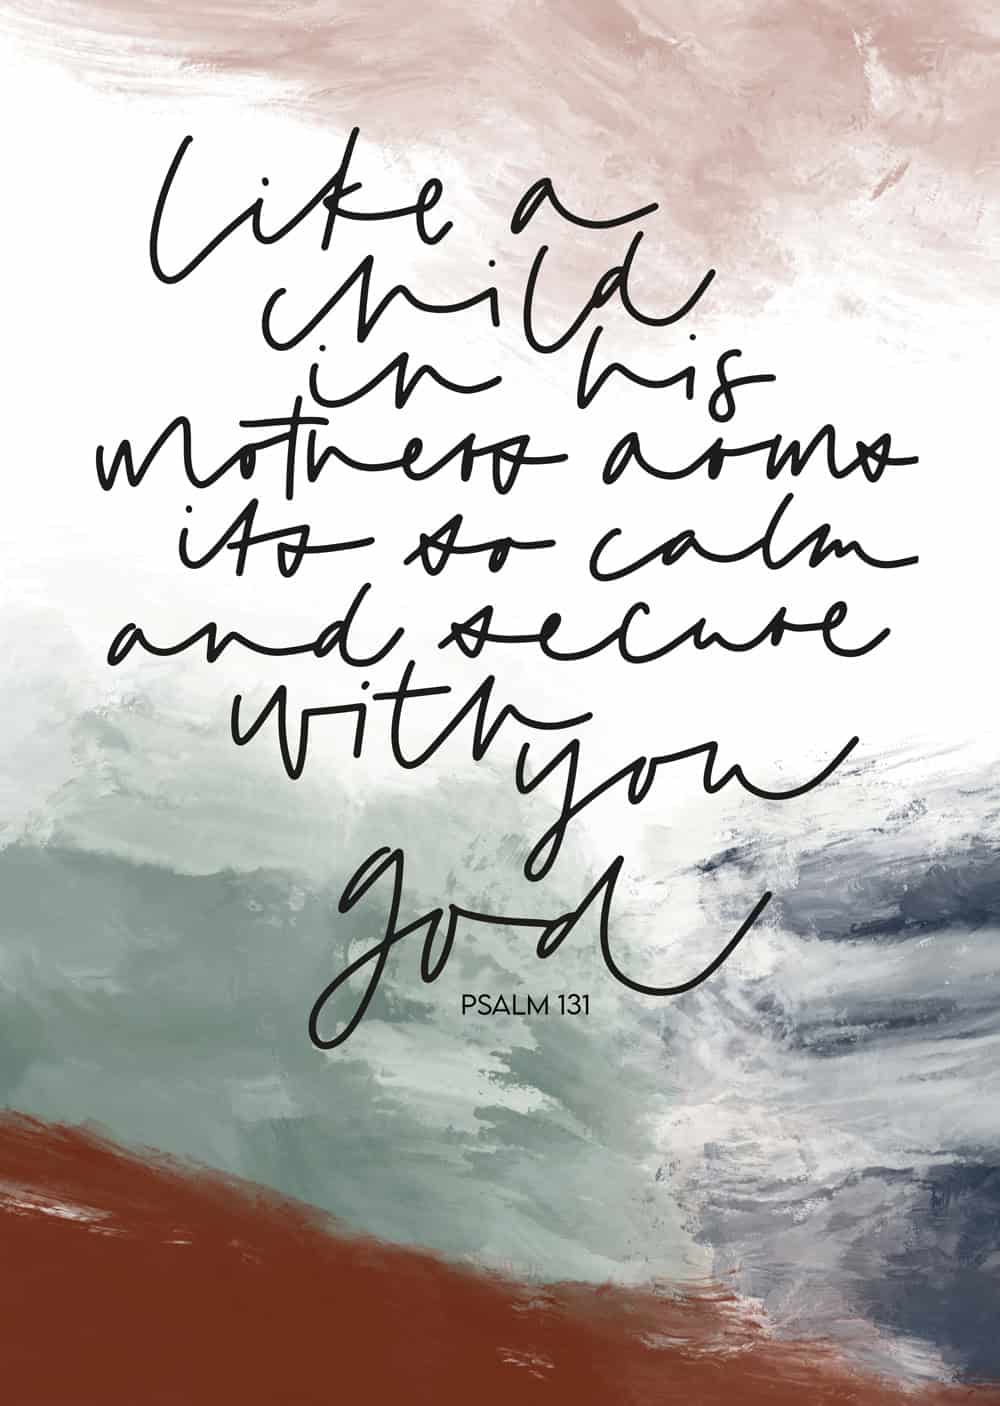 like a
child
in his
mothers arms
its so calm
and secure
with
you
god
PSALM 131